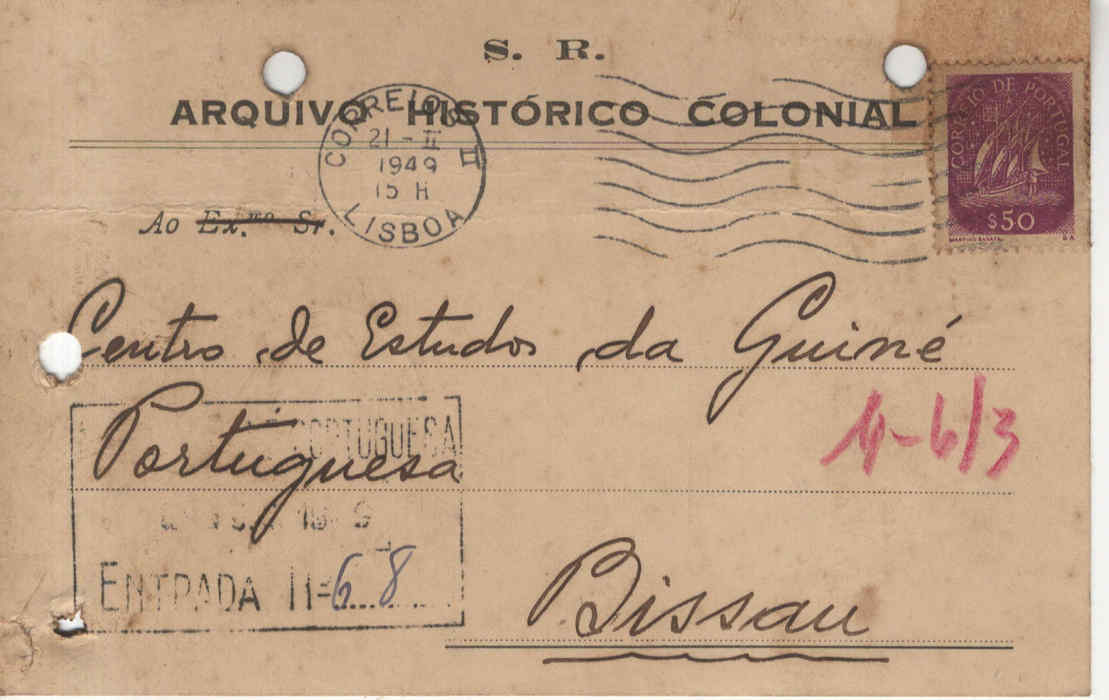 S. R.
ARQUIVO HISTÓRICO COLONIAL
CORREIOS
21 - II
1949
15 H
LISBOA
II
CORREIO DE PORTUGAL
$50
MARTINS BARATA
Ao Ex.mo Sr.
Centro de Estudos da Guiné
Portuguesa
PORTUGUESA
ENTRADA Nº 68
Bissau